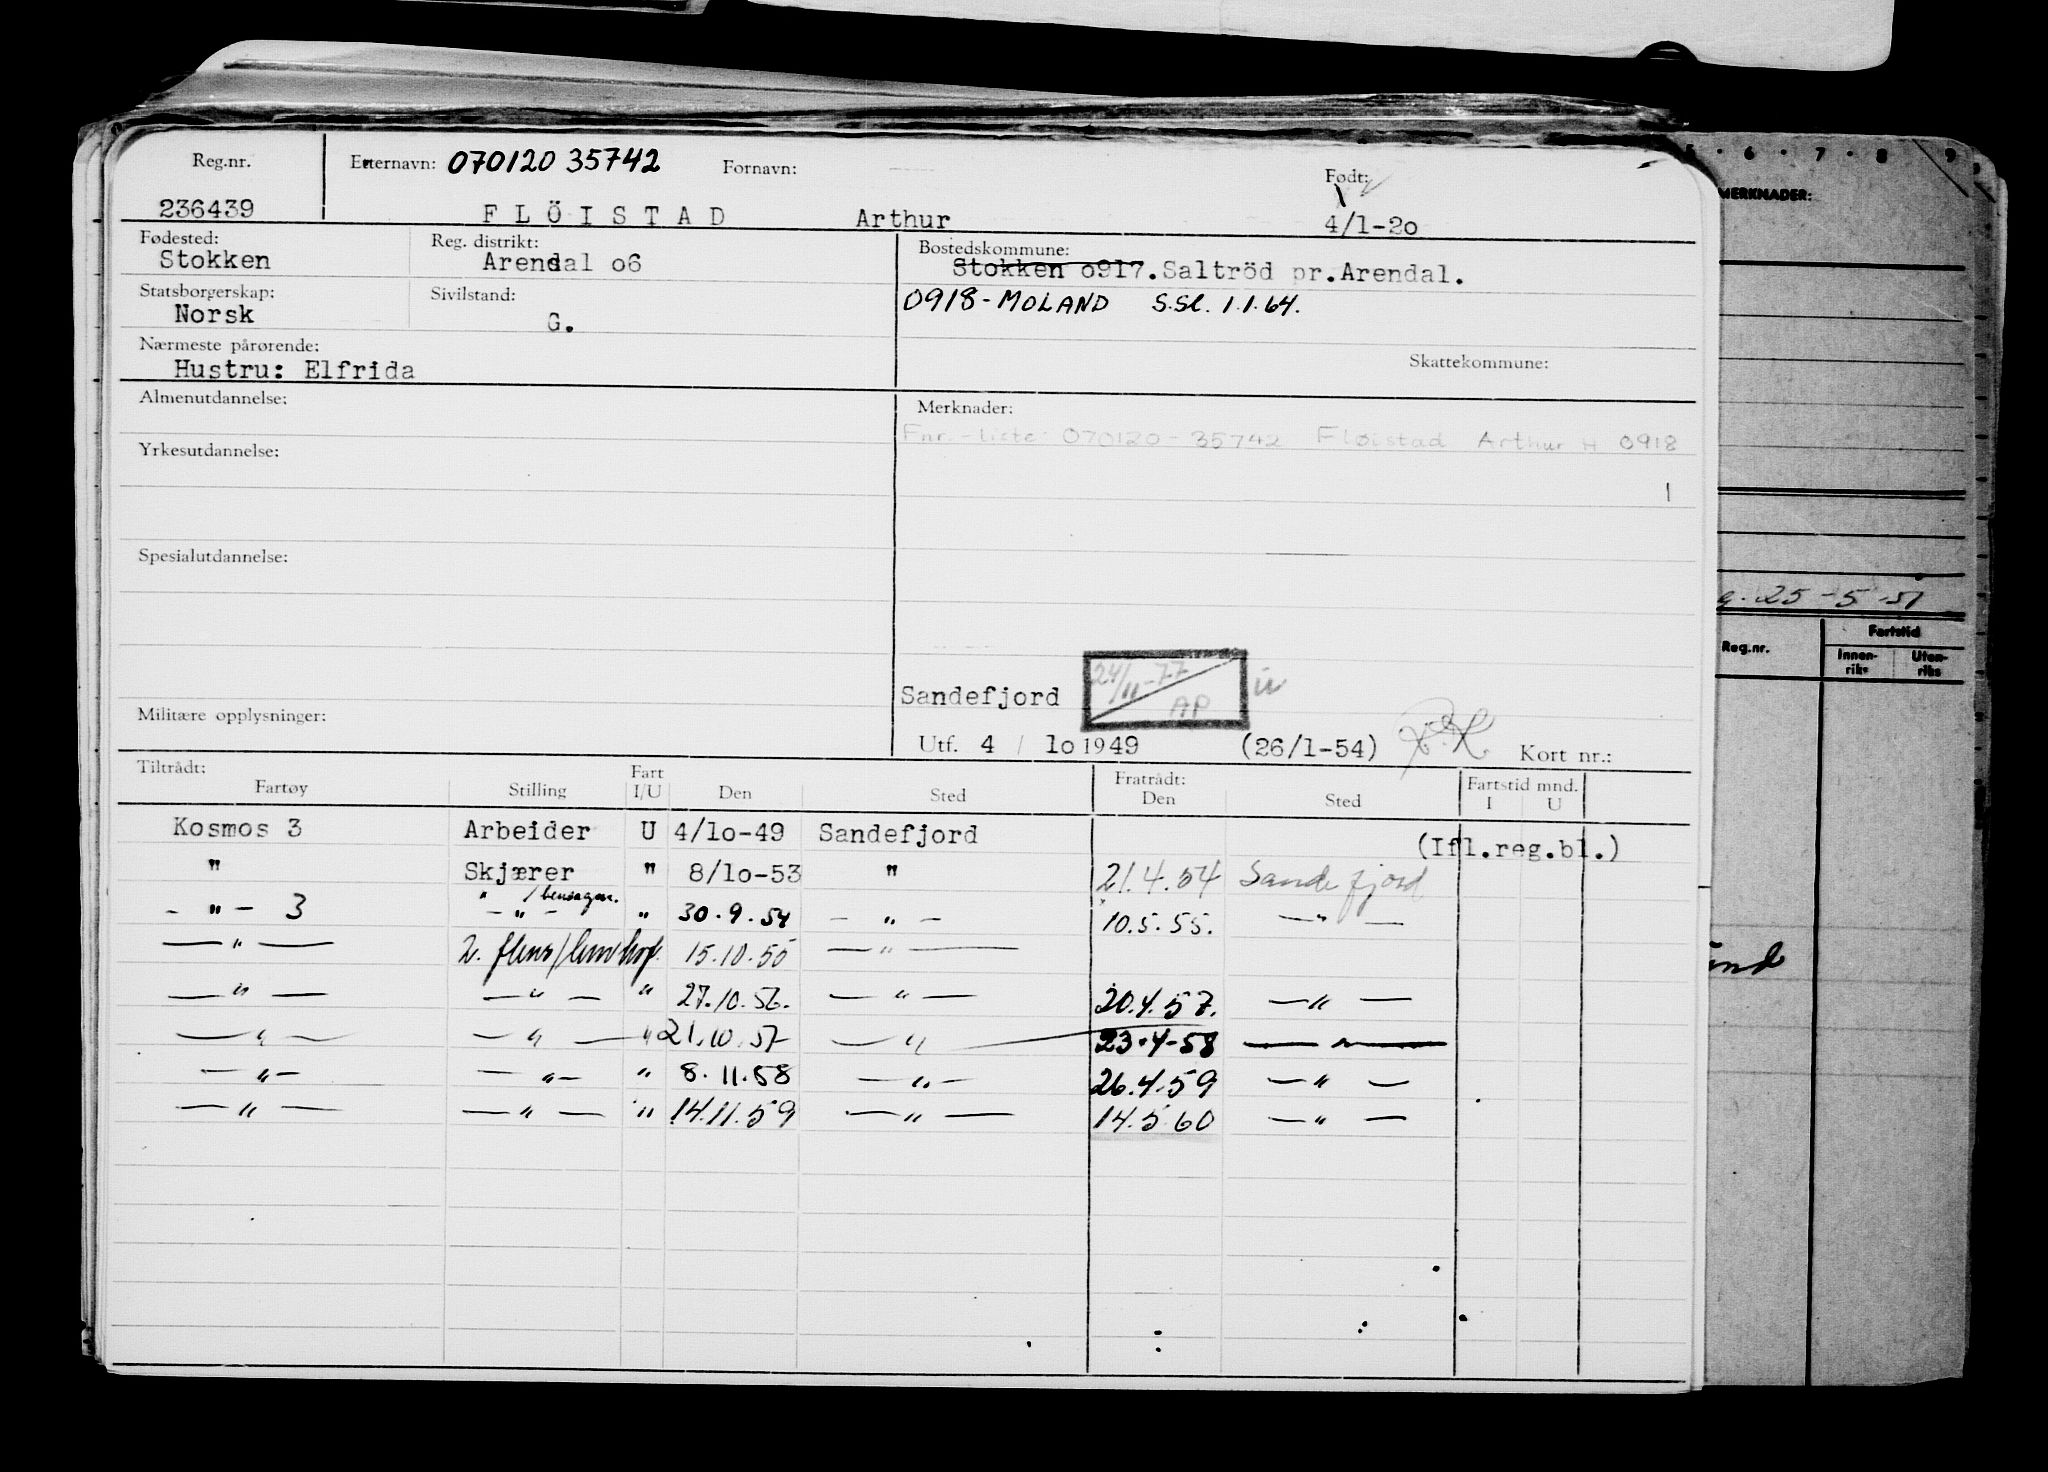 Reg.nr. Etternavn: 070120 35742 Fornavn: Født:
236439 FLÖISTAD Arthur 4/1-2o
Fødested: Reg. distrikt: Bostedskommune:
Stokken Arendal o6 Stokken o917. Saltröd pr. Arendal.
Statsborgerskap: Sivilstand: 0918-MOLAND S.Sl. 1.1.64.
Norsk G.
Nærmeste pårørende: Skattekommune:
Hustru: Elfrida
Almenutdannelse: Merknader:
Fnr.-liste: 070120-35742 Fløistad Arthur H 0918
Yrkesutdannelse:
1
Spesialutdannelse:
24/11-77
Sandefjord AP
Militære opplysninger:
Utf. 4 / 1o 1949 (26/1-54) Kort nr.:
Tiltrådt: Fart Fratrådt: Fartstid mnd.
Fartøy Stilling I/U Den Sted Den Sted I U
Kosmos 3 Arbeider U 4/1o-49 Sandefjord (Ifl.reg.bl.)
" Skjærer " 8/1o-53 " 21.4.54 Sandefjord
- " - 3 - " - " 30.9.54 - " - 10.5.55. - " -
- " - 2. flens/lemhof. 15.10.55 - " -
- " - - " - " 27.10.56. - " - 20.4.57. - " -
- " - - " - " 21.10.57 - " - 23.4-58 - " -
- " - - " - " 8.11.58 - " - 26.4.59 - " -
- " - - " - " 14.11.59 - " - 14.5.60 - " -
5 · 6 · 7 · 8 9
MERKNADER:
25-5-51
Reg.nr. Fartstid
Innen-riks Uten-riks